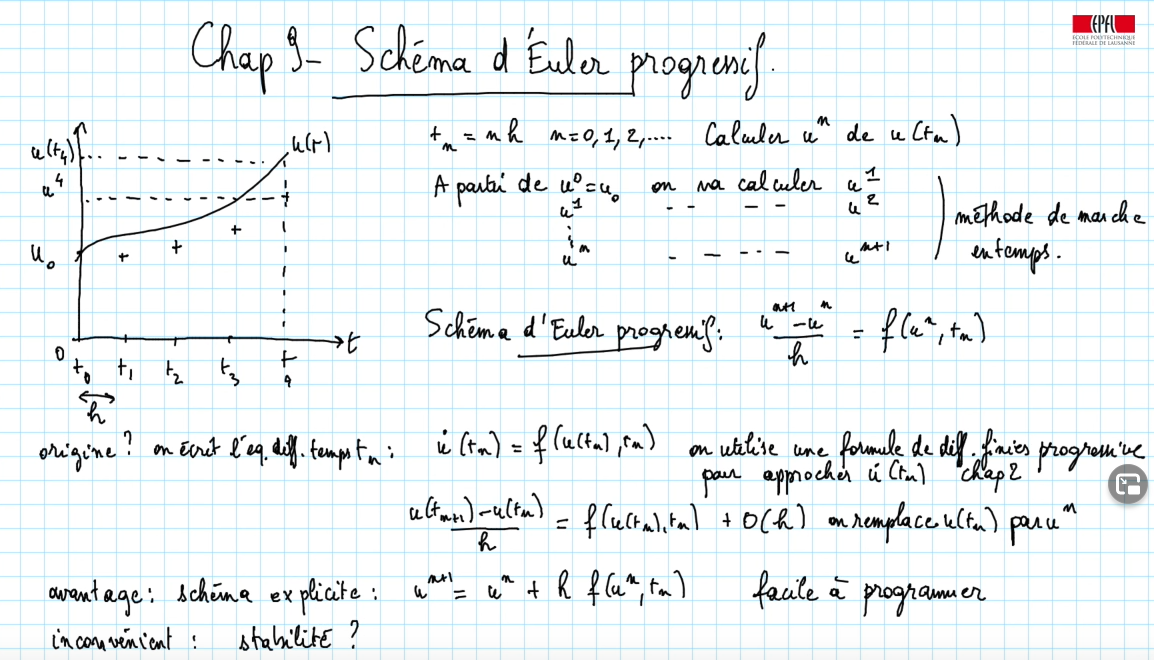 EPFL
ÉCOLE POLYTECHNIQUE
FÉDÉRALE DE LAUSANNE
Chap 9 - Schéma d'Euler progressif.
u(t₄)
u⁴
u₀
u(t)
0 t₀ t₁ t₂ t₃ t₄ t
h
tₙ = nh n=0,1,2,.... Calculer uⁿ de u(tₙ)
A partir de u⁰=u₀ on va calculer u¹
u¹ - - - - u²
⋮
uⁿ - - - · - uⁿ⁺¹
méthode de marche
en temps.
Schéma d'Euler progressif: (uⁿ⁺¹ - uⁿ)/h = f(uⁿ, tₙ)
origine? on écrit l'éq. diff. temps tₙ: u̇(tₙ) = f(u(tₙ), tₙ) on utilise une formule de diff. finies progressive
pour approcher u̇(tₙ) chap 2
(u(tₙ₊₁) - u(tₙ))/h = f(u(tₙ), tₙ) + O(h) on remplace u(tₙ) par uⁿ
avantage: schéma explicite: uⁿ⁺¹ = uⁿ + h f(uⁿ, tₙ) facile à programmer
inconvénient: stabilité?